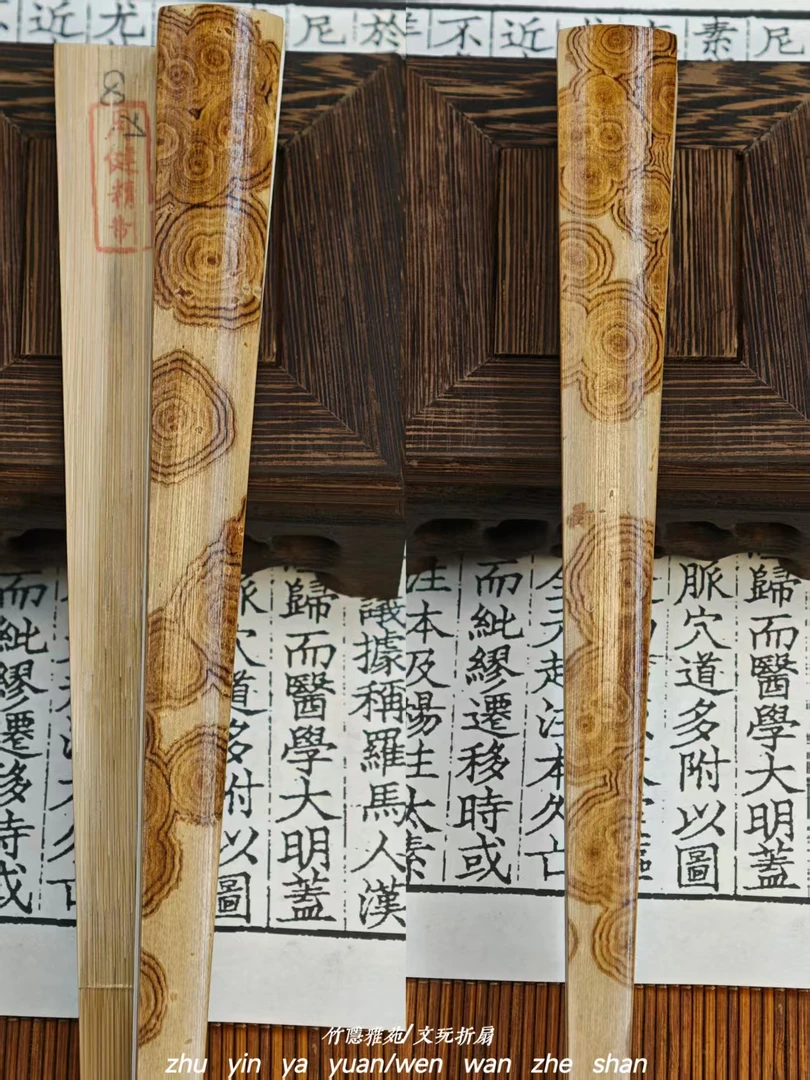 於
尼
尤
近
不
健精
據稱羅馬人漢
歸而醫學大明蓋
穴道多附以圖
而紕繆遷移時或
尼
素
近
不
歸而醫學大明蓋
脈穴道多附以圖
全元起注本久亡
而紕繆遷移時或
注本及楊注太素
竹隱雅苑/文玩折扇
zhu yin ya yuan/wen wan zhe shan